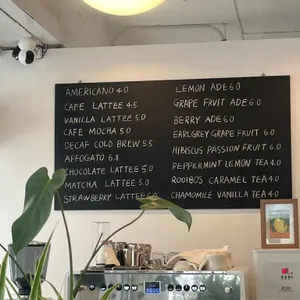 AMERICANO 4.0
CAFE LATTEE 4.5
VANILLA LATTEE 5.0
CAFE MOCHA 5.0
DECAF COLD BREW 5.5
AFFOGATO 6.8
CHOCOLATE LATTEE 5.0
MATCHA LATTEE 5.0
STRAWBERRY LATTEE 6.0
LEMON ADE 6.0
GRAPE FRUIT ADE 6.0
BERRY ADE 6.0
EARLGREY GRAPE FRUIT 6.0
HIBISCUS PASSION FRUIT 6.0
PEPPERMINT LEMON TEA 4.0
ROOIBOS CARAMEL TEA 4.0
CHAMOMILE VANILLA TEA 4.0